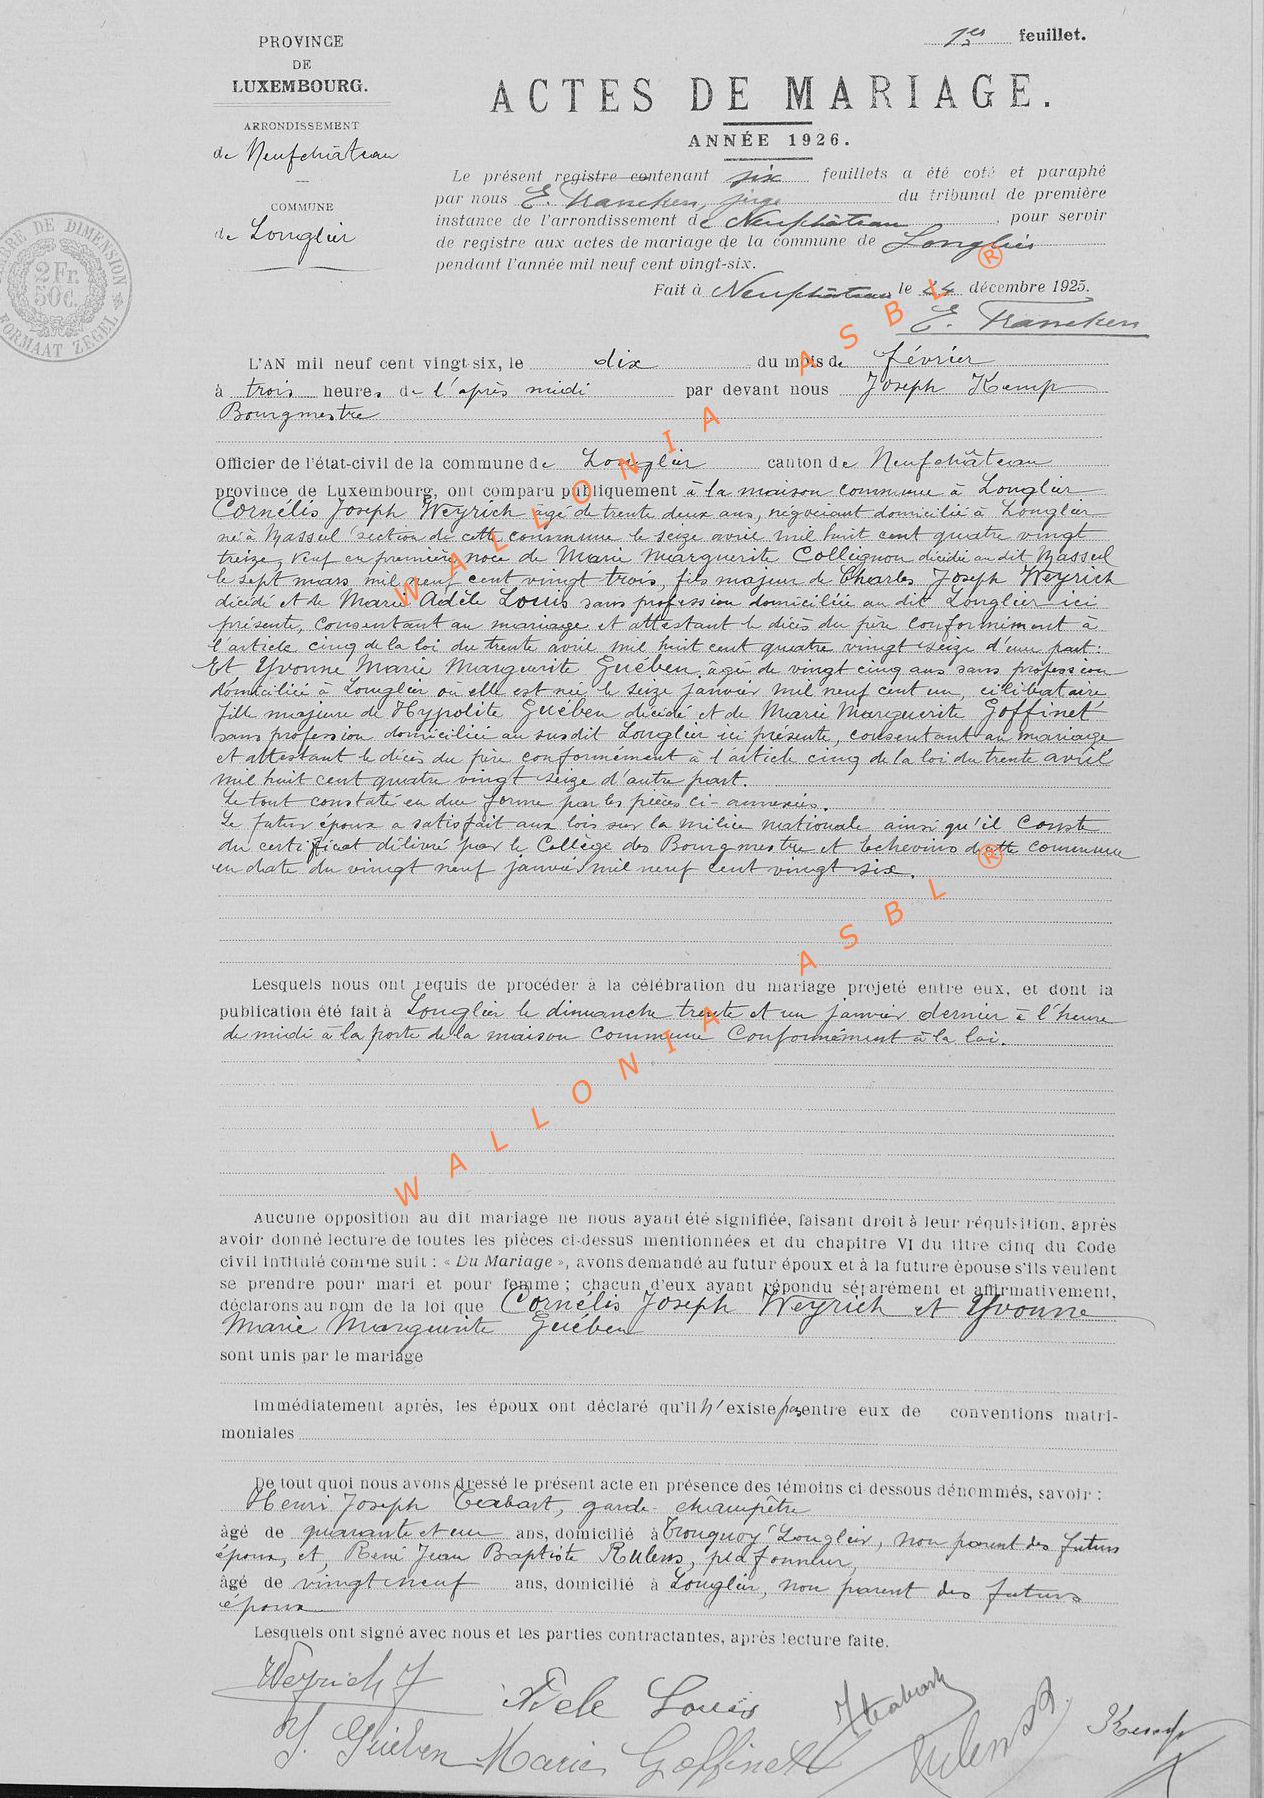 PROVINCE
DE
LUXEMBOURG.
ARRONDISSEMENT
de Neufchâteau
COMMUNE
de Longlier
2 Fr.
50 c.
DE DIMENSION
FORMAAT ZEGEL
1er feuillet.
ACTES DE MARIAGE.
ANNÉE 1926.
Le présent registre contenant six feuillets a été coté et paraphé
par nous E. Francken, juge du tribunal de première
instance de l'arrondissement de Neufchâteau, pour servir
de registre aux actes de mariage de la commune de Longlier
pendant l'année mil neuf cent vingt-six.
Fait à Neufchâteau le 24 décembre 1925.
E. Francken
L'AN mil neuf cent vingt-six, le dix du mois de février
à trois heures de l'après midi par devant nous Joseph Kemp
Bourgmestre
Officier de l'état-civil de la commune de Longlier canton de Neufchâteau
province de Luxembourg, ont comparu publiquement à la maison commune à Longlier
Cornélis Joseph Weyrich âgé de trente deux ans, négociant domicilié à Longlier
né à Massul section de cette commune le seize avril mil huit cent quatre vingt
treize, veuf en première noce de Marie Marguerite Collignon décédée au dit Massul
le sept mars mil neuf cent vingt trois, fils majeur de Charles Joseph Weyrich
décédé et de Marie Adèle Louis sans profession domiciliée au dit Longlier ici
présente, consentant au mariage et attestant le décès du père conformément à
l'article cinq de la loi du trente avril mil huit cent quatre vingt seize d'une part:
Et Yvonne Marie Marguerite Guében, âgée de vingt cinq ans sans profession
domiciliée à Longlier où elle est née le seize janvier mil neuf cent un, célibataire
fille majeure de Hypolite Guében décédé et de Marie Marguerite Goffinet
sans profession domiciliée au susdit Longlier ici présente, consentant au mariage
et attestant le décès du père conformément à l'article cinq de la loi du trente avril
mil huit cent quatre vingt seize d'autre part.
Le tout constaté en due forme par les pièces ci-annexées.
Le futur époux a satisfait aux lois sur la milice nationale ainsi qu'il conste
du certificat délivré par le Collège des Bourgmestre et Echevins de cette commune
en date du vingt neuf janvier mil neuf cent vingt six.
Lesquels nous ont requis de procéder à la célébration du mariage projeté entre eux, et dont la
publication été fait à Longlier le dimanche trente et un janvier dernier à l'heure
de midi à la porte de la maison commune conformément à la loi.
Aucune opposition au dit mariage ne nous ayant été signifiée, faisant droit à leur réquisition, après
avoir donné lecture de toutes les pièces ci-dessus mentionnées et du chapitre VI du titre cinq du Code
civil intitulé comme suit : « Du Mariage », avons demandé au futur époux et à la future épouse s'ils veulent
se prendre pour mari et pour femme ; chacun d'eux ayant répondu séparément et affirmativement,
déclarons au nom de la loi que Cornélis Joseph Weyrich et Yvonne
Marie Marguerite Guében
sont unis par le mariage
Immédiatement après, les époux ont déclaré qu'il n'existe pas entre eux de conventions matri-
moniales
De tout quoi nous avons dressé le présent acte en présence des témoins ci-dessous dénommés, savoir :
Henri Joseph Trabart, garde-champêtre
âgé de quarante et un ans, domicilié à Tronquoy Longlier, non parent des futurs
époux, et René Jean Baptiste Rulens, plafonneur,
âgé de vingt neuf ans, domicilié à Longlier, non parent des futurs
époux
Lesquels ont signé avec nous et les parties contractantes, après lecture faite.
Weyrich J
Adèle Louis
Kemp
Y. Guében
Marie Goffinet
WALLONIA ASBL ®
WALLONIA ASBL ®